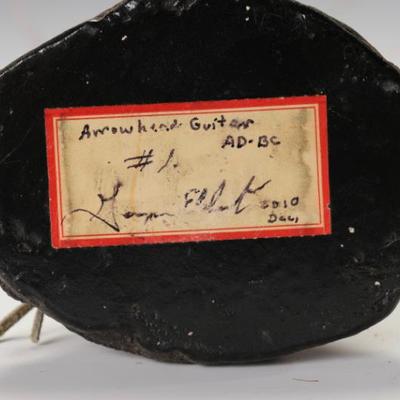 Arrowhead Guitar
AD-BC
#1.
2010
Dec,